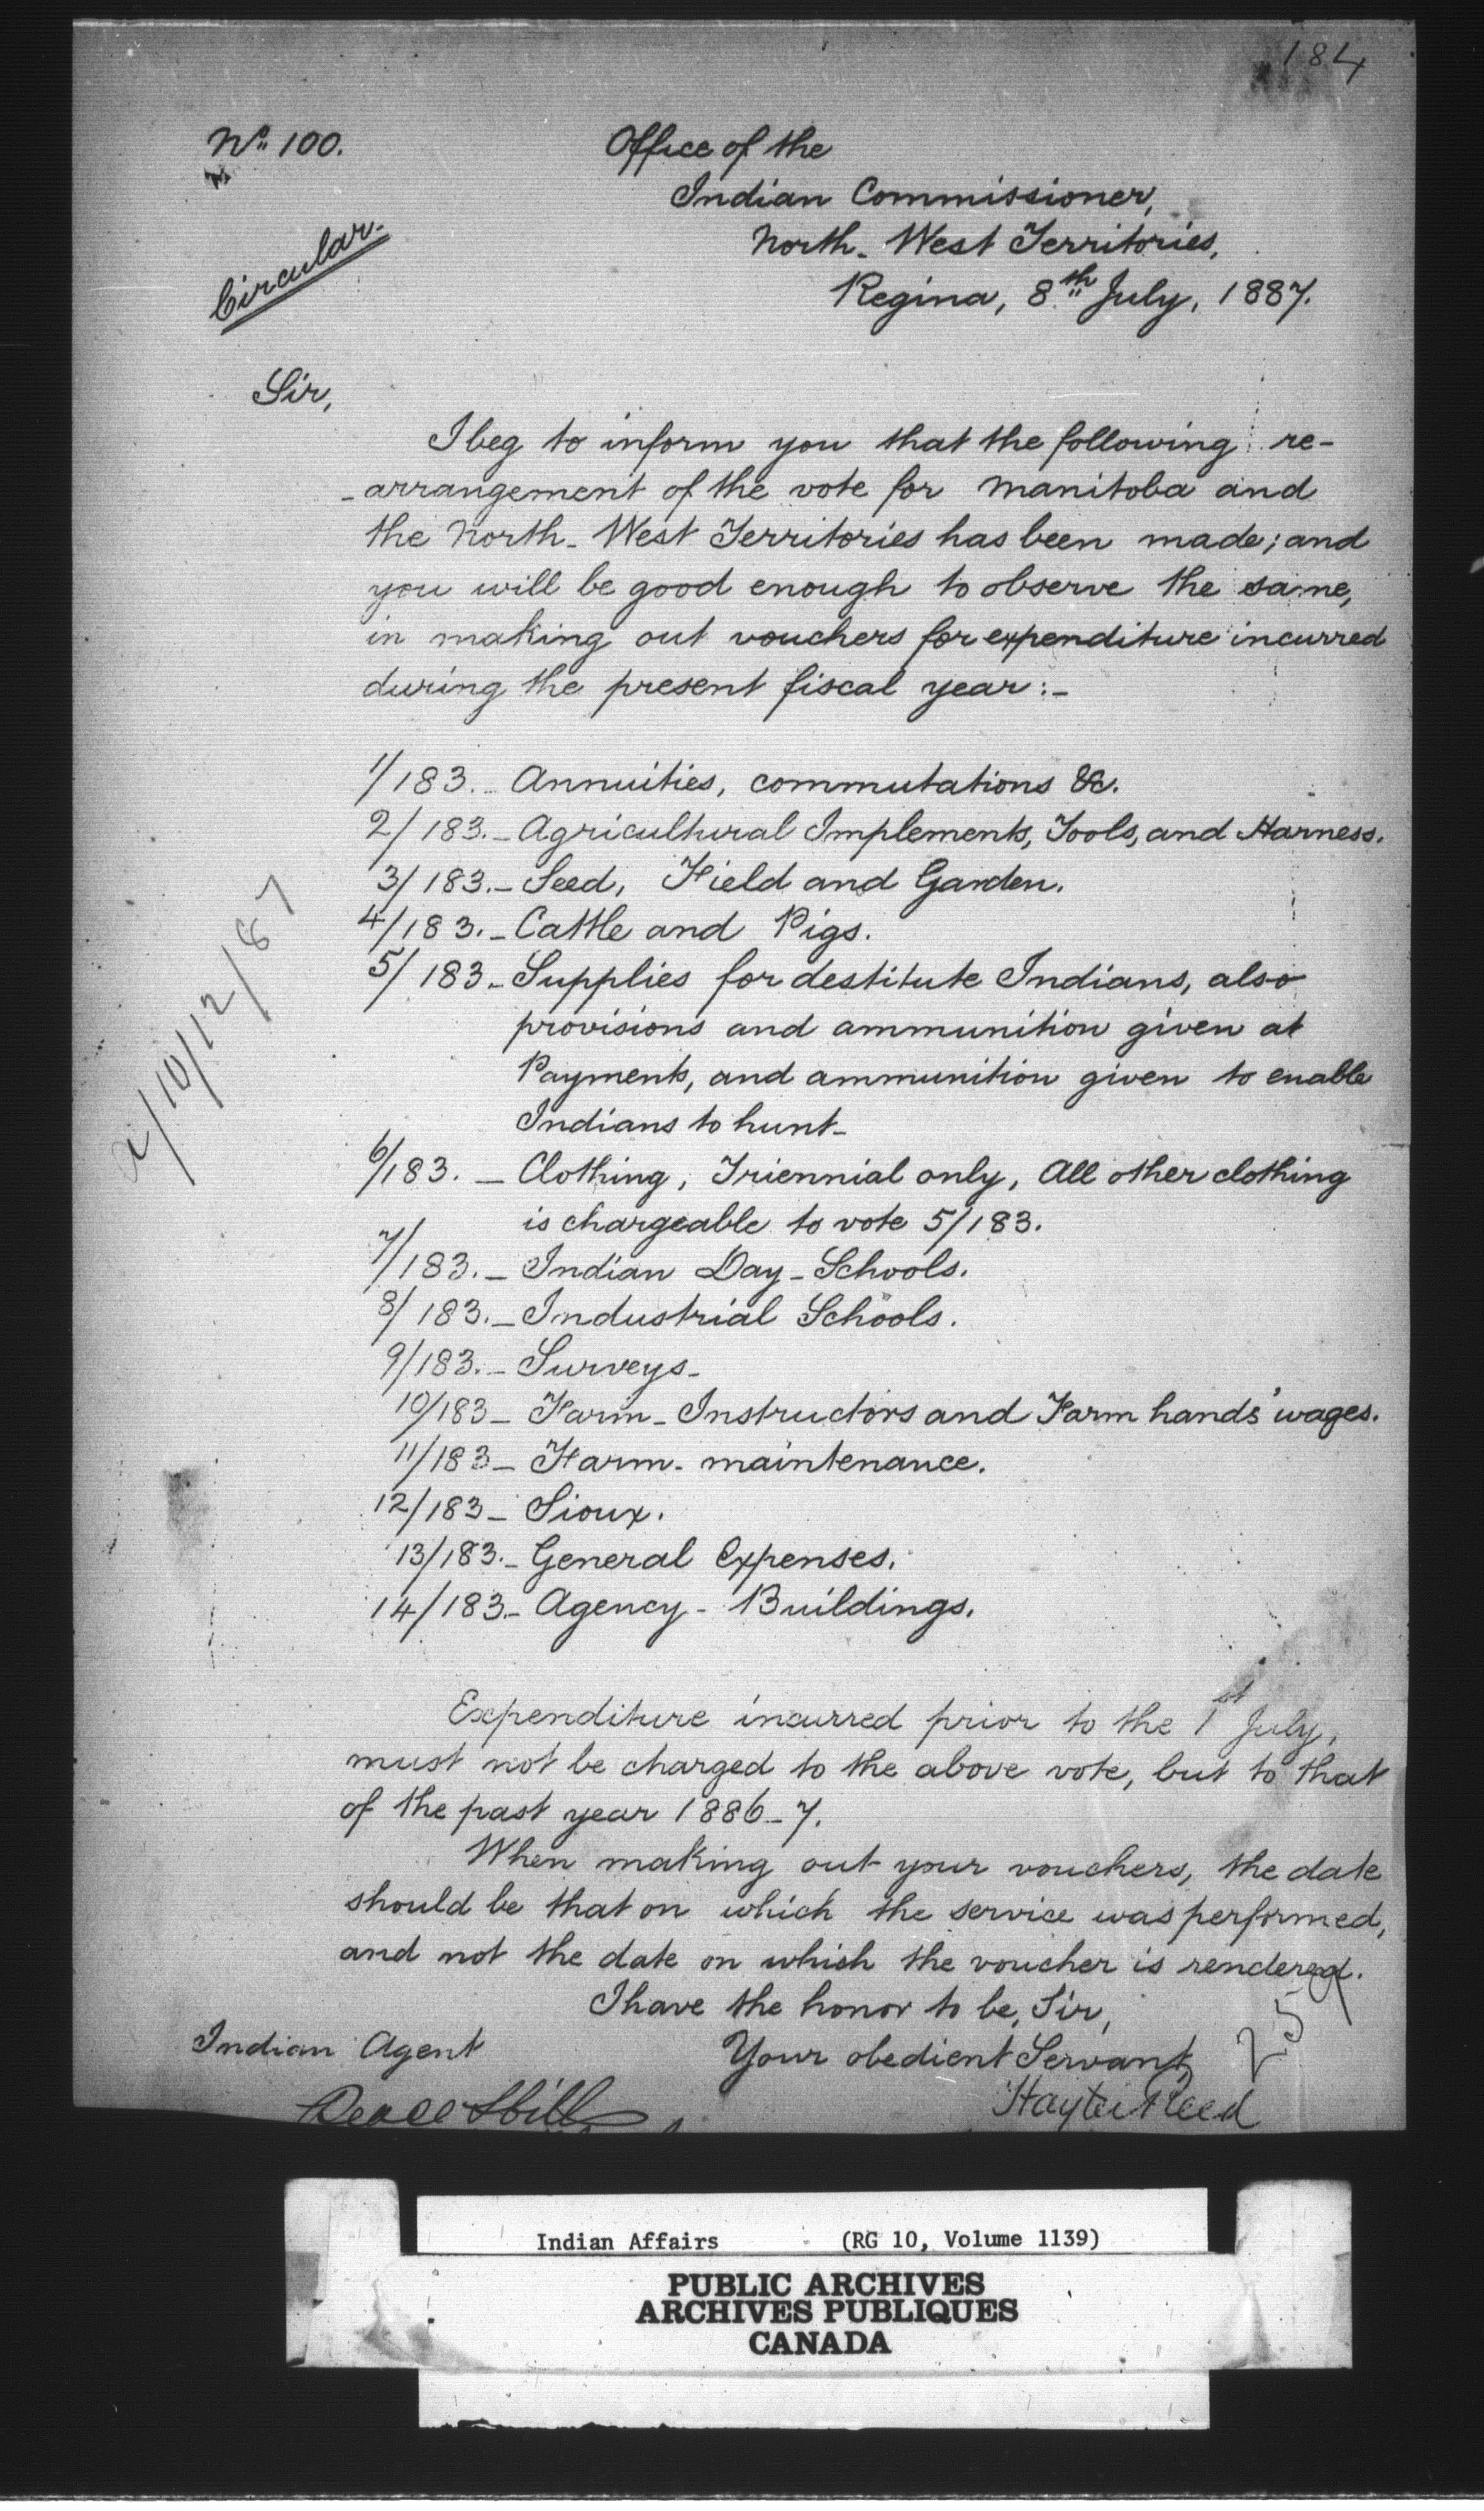 184
No. 100.
Office of the
Indian Commissioner,
North-West Territories,
Regina, 8th July, 1887.
Circular.
Sir,
I beg to inform you that the following re-
-arrangement of the vote for Manitoba and
the North-West Territories has been made; and
you will be good enough to observe the same,
in making out vouchers for expenditure incurred
during the present fiscal year:-
1/183.- Annuities, commutations &c.
2/183.- Agricultural Implements, Tools, and Harness.
3/183.- Seed, Field and Garden.
4/183.- Cattle and Pigs.
5/183- Supplies for destitute Indians, also
provisions and ammunition given at
Payments, and ammunition given to enable
Indians to hunt-
6/183. - Clothing, Triennial only, All other clothing
is chargeable to vote 5/183.
7/183.- Indian Day-Schools.
8/183.- Industrial Schools.
9/183.- Surveys-
10/183- Farm-Instructors and Farm hands' wages.
11/183- Farm-maintenance.
12/183- Sioux.
13/183.- General Expenses.
14/183- Agency-Buildings.
Expenditure incurred prior to the 1st July,
must not be charged to the above vote, but to that
of the past year 1886-7.
When making out your vouchers, the date
should be that on which the service was performed,
and not the date on which the voucher is rendered.
I have the honor to be, Sir,
Your obedient Servant,
Hayter Reed
Indian Agent
Peace Hill
10/12/87
Indian Affairs (RG 10, Volume 1139)
PUBLIC ARCHIVES
ARCHIVES PUBLIQUES
CANADA